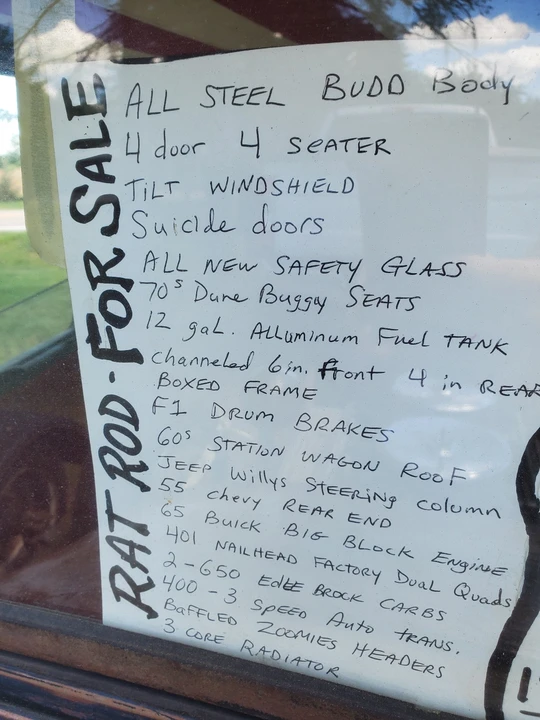 RAT ROD - FOR SALE
ALL STEEL BUDD Body
4 door 4 SEATER
TILT WINDSHIELD
Suicide doors
ALL NEW SAFETY GLASS
70s Dune Buggy SEATS
12 gaL. ALLuminum Fuel TANK
channeled 6 in. front 4 in REAR
BOXED FRAME
F1 DRUM BRAKES
60s STATION WAGON ROOF
JEEP Willys STEERING column
55 Chevy REAR END
65 Buick BIG BLOCK ENGINE
401 NAILHEAD FACTORY DUAL Quads
2-650 EdLE BROCK CARBS
400-3 SPEED AUTO TRANS.
BAFFLED ZOOMIES HEADERS
3 CORE RADIATOR